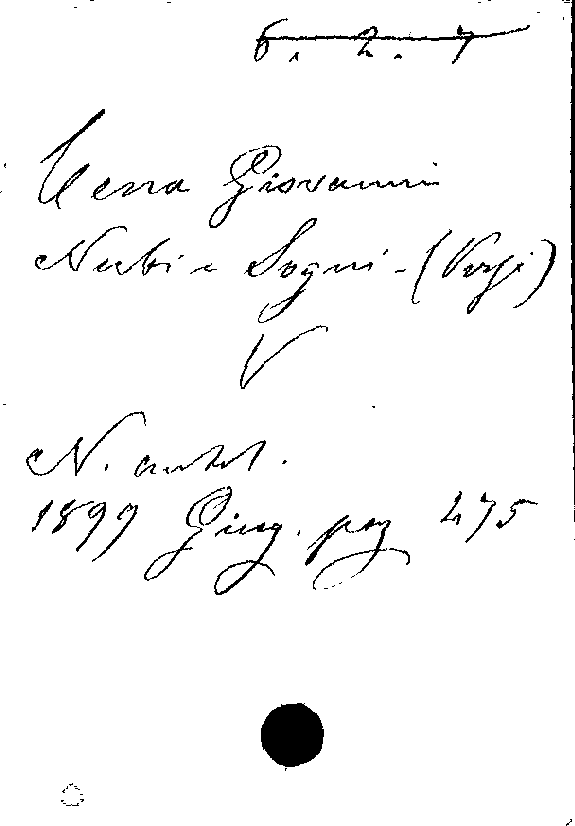 6. 2. 7
Cena Giovanni
Nubi e Sogni - (Versi)
V
N. antol.
1899 Giug. pag 475